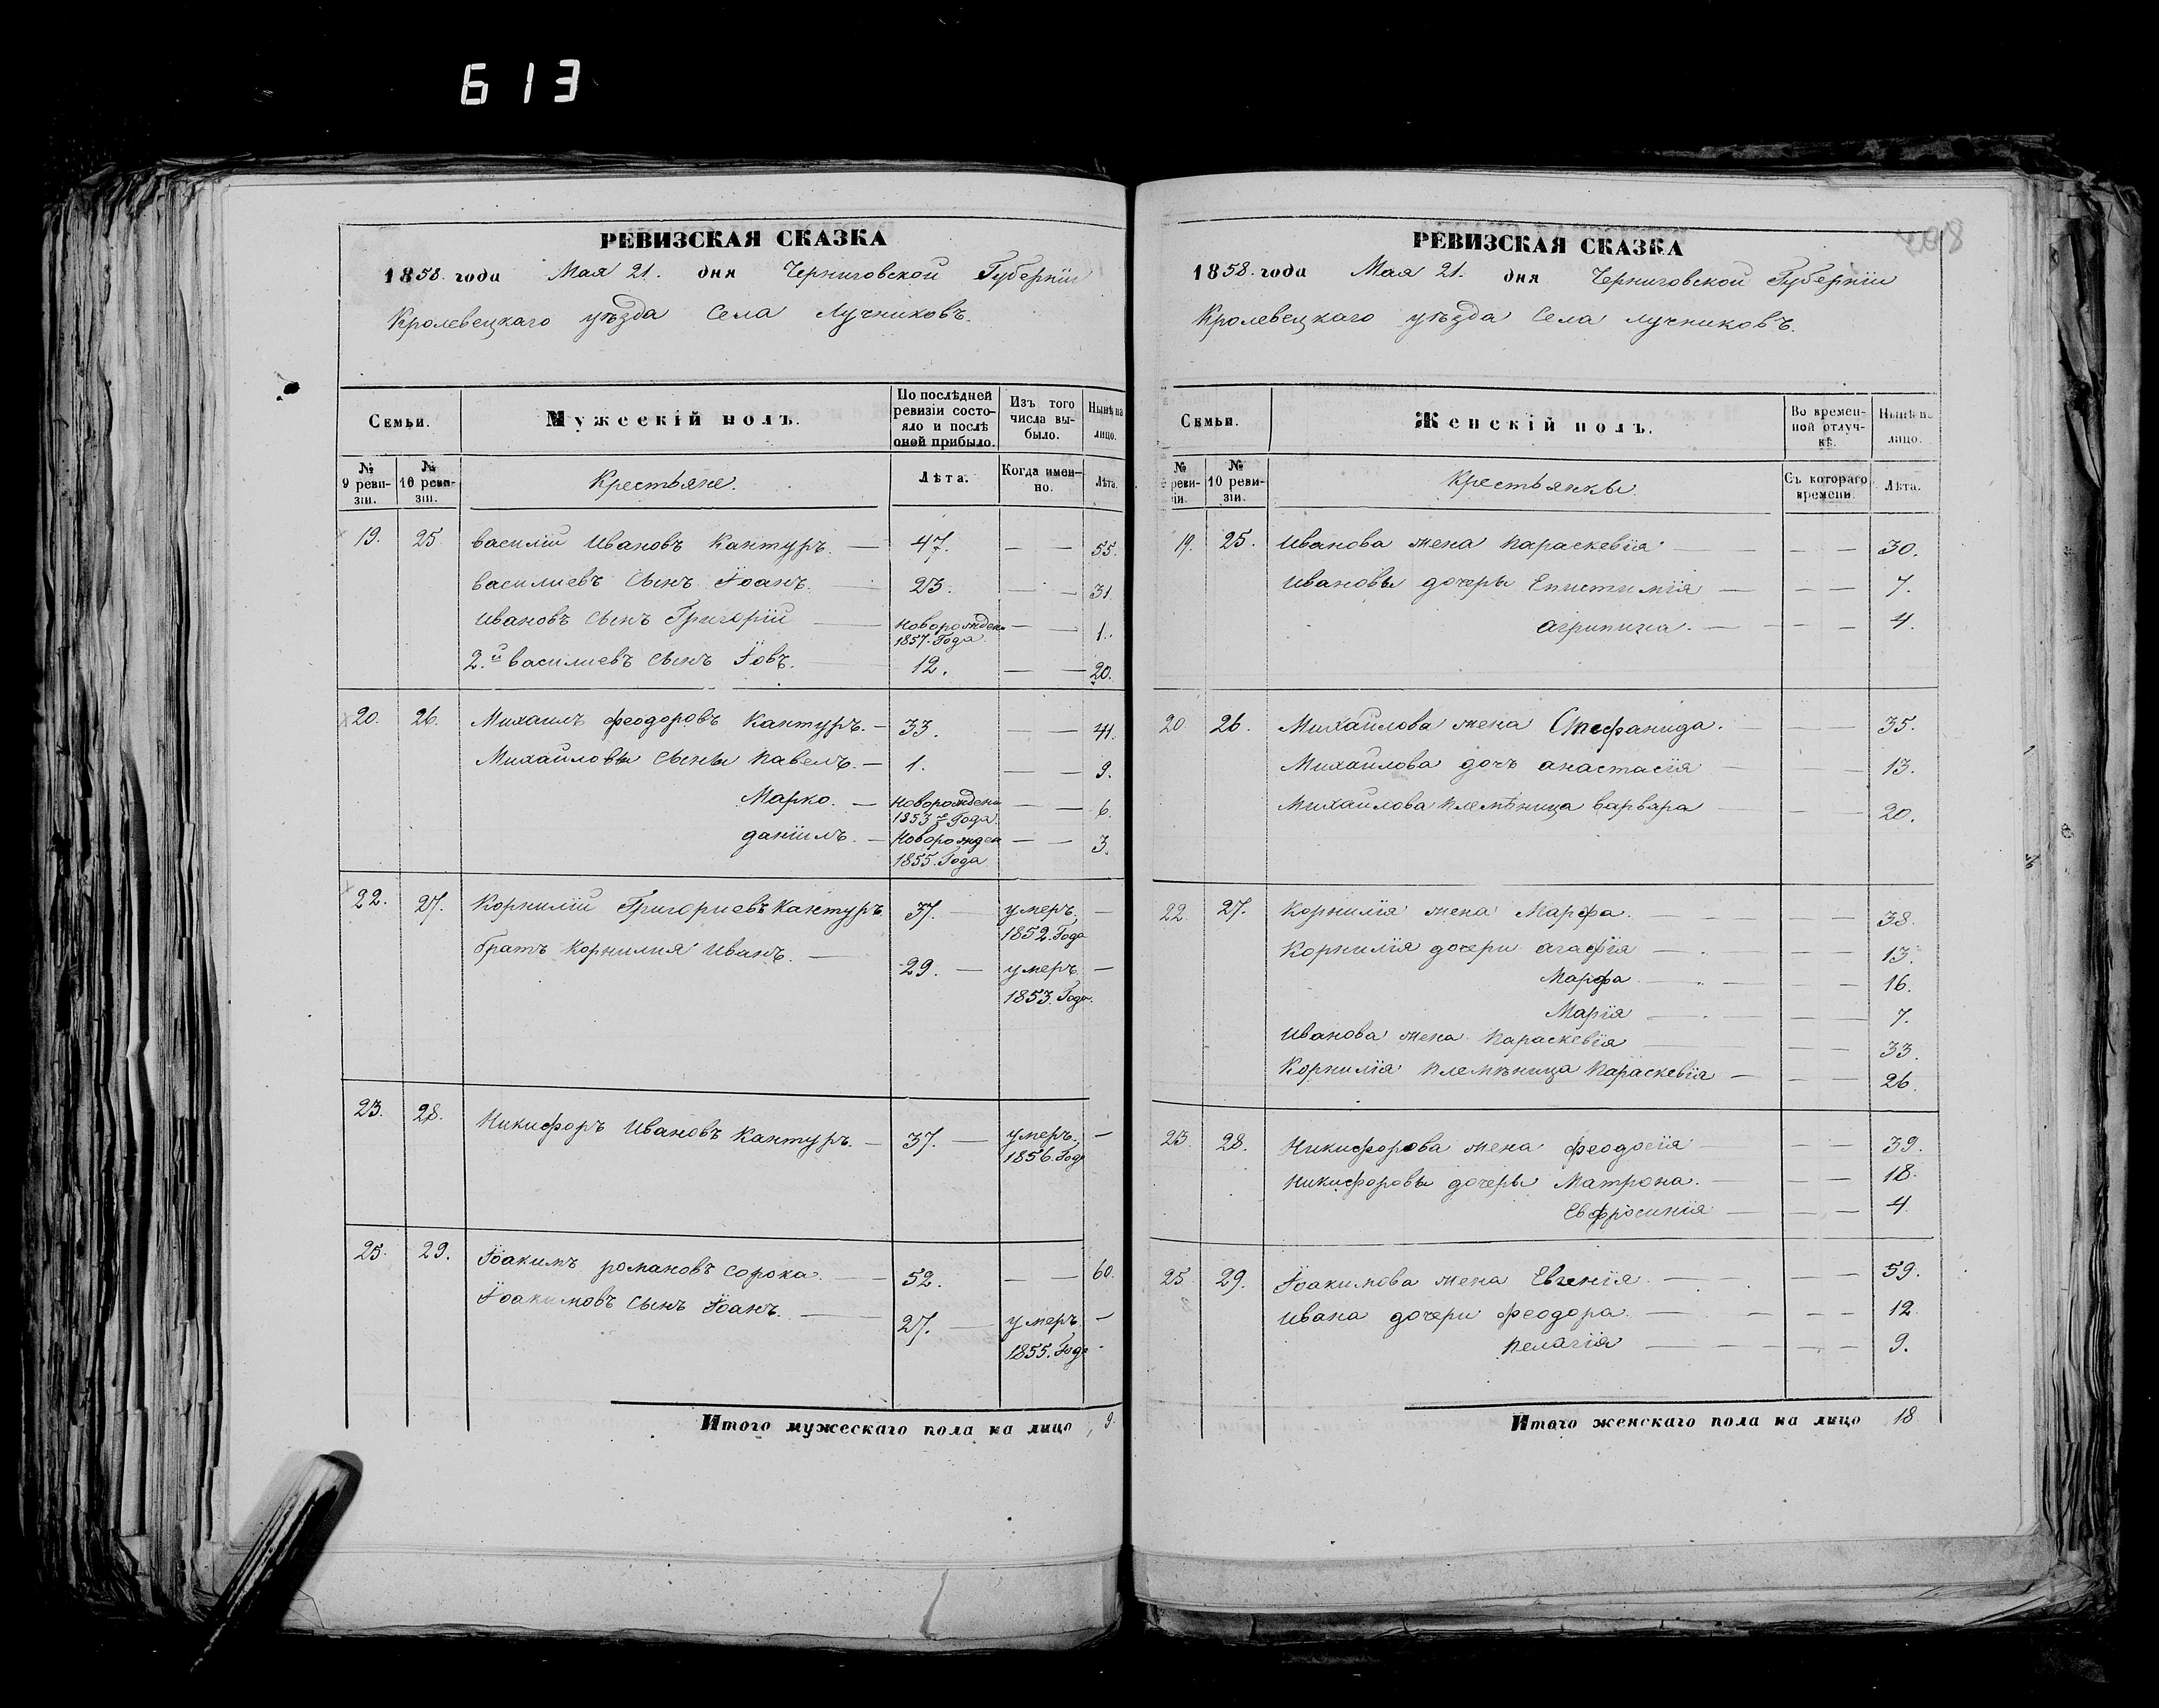 613
РЕВИЗСКАЯ СКАЗКА
1858. года Мая 21. дня Черниговской Губерніи
Кролевецкаго уѣзда Села Лучниковъ.
Семьи.
Мужескій полъ.
По послѣдней ревизіи состо-
яло и послѣ оной прибыло.
Изъ того числа вы-
было.
Нынѣ на лицо.
№ 9 реви-
зіи.
№ 10 реви-
зіи.
Крестьяне.
Лѣта.
Когда имен-
но.
Лѣта.
19. 25 Василій Ивановъ Кантуръ. — 47. — — 55.
Василиевъ Сынъ Іоанъ. — 23. — — 31.
Ивановъ Сынъ Григорій — Новорожден. — — 1.
1857. Года.
2.й Василиевъ Сынъ Іовъ. — 12. — — 20.
20. 26. Михаилъ Феодоровъ Кантуръ. — 33. — — 41.
Михайловы Сыны Павелъ. — 1. — — 9.
Марко. — Новорожден — — 6.
1853 Года.
Даніилъ. — Новорожден — — 3.
1855. Года
22. 27. Корнилій Григориевъ Кантуръ 37. — умеръ, —
1852. Года
братъ Корнилия Иванъ. — 29. — умеръ —
1853. Года.
23. 28. Никифоръ Ивановъ Кантуръ. — 37. — умеръ, —
1856. Года
25. 29. Іоакимъ Романовъ Сорока. — 52. — — 60.
Іоакимовъ Сынъ Іоанъ. — 27. — умеръ —
1855. Года
Итого мужескаго пола на лицо 9.
РЕВИЗСКАЯ СКАЗКА
1858. года Мая 21. дня Черниговской Губерніи
Кролевецкаго уѣзда Села Лучниковъ.
Семьи.
Женскій полъ.
Во времен-
ной отлуч-
кѣ.
Нынѣ на лицо.
№ реви-
зіи.
№ 10 реви-
зіи.
Крестьянки
Съ котораго времени.
Лѣта.
19. 25. Иванова жена Параскевія — — — 30.
Ивановы дочеры Епистимія — — — 7.
Агрипина. — — — 4.
20 26. Михайлова жена Стефанида. — — — 35.
Михайлова дочъ Анастасія — — — 13.
Михайлова племѣница Варвара — — — 20.
22. 27. Корнилія жена Марфа. — — — 38.
Корнилія дочери Агафія — — — 13.
Марфа — — — 16.
Марія — — — 7.
Иванова жена Параскевія — — — 33.
Корнилія племѣница Параскевія — — — 26.
23. 28. Никифорова жена Феодосія — — — 39.
Никифоровы дочеры Матрона. — — — 18.
Евфросинія — — — 4.
25. 29. Іоакимова жена Евгенія. — — — 59.
Ивана дочери Феодора. — — — 12.
Пелагія — — — 9.
Итого женскаго пола на лицо 18